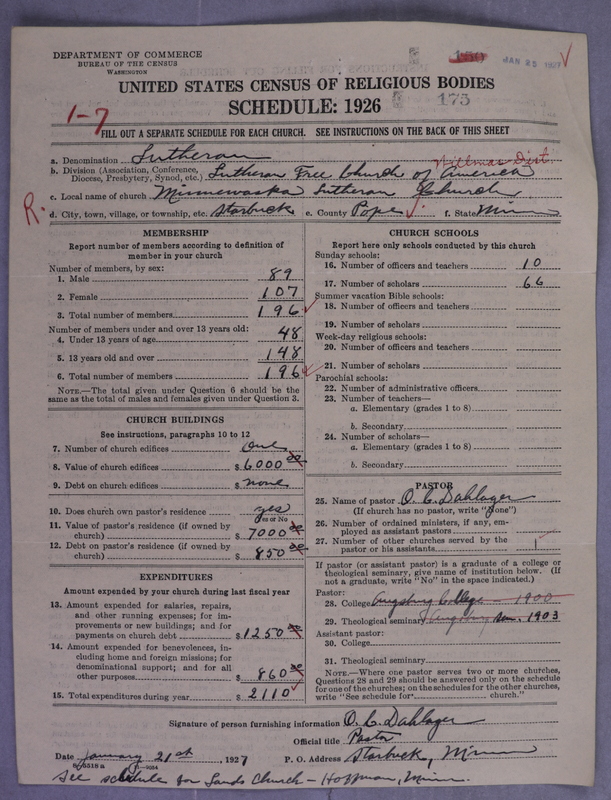 DEPARTMENT OF COMMERCE
BUREAU OF THE CENSUS
WASHINGTON
150
JAN 25 1927
UNITED STATES CENSUS OF RELIGIOUS BODIES
SCHEDULE: 1926
175
1-7
FILL OUT A SEPARATE SCHEDULE FOR EACH CHURCH. SEE INSTRUCTIONS ON THE BACK OF THIS SHEET
a. Denomination Lutheran
Willmar Dist.
b. Division (Association, Conference, Diocese, Presbytery, Synod, etc.) Lutheran Free Church of America
c. Local name of church Minnewaska Lutheran Church
R.
d. City, town, village, or township, etc. Starbuck e. County Pope f. State Minn
MEMBERSHIP
Report number of members according to definition of
member in your church
Number of members, by sex:
1. Male 89
2. Female 107
3. Total number of members 196
Number of members under and over 13 years old:
4. Under 13 years of age 48
5. 13 years old and over 148
6. Total number of members 196
NOTE.—The total given under Question 6 should be the
same as the total of males and females given under Question 3.
CHURCH BUILDINGS
See instructions, paragraphs 10 to 12
7. Number of church edifices One
8. Value of church edifices $ 6000 00
9. Debt on church edifices $ none
10. Does church own pastor's residence yes
Yes or No
11. Value of pastor's residence (if owned by
church) $ 7000 00
12. Debt on pastor's residence (if owned by
church) $ 850 00
EXPENDITURES
Amount expended by your church during last fiscal year
13. Amount expended for salaries, repairs,
and other running expenses; for im-
provements or new buildings; and for
payments on church debt $ 1250 00
14. Amount expended for benevolences, in-
cluding home and foreign missions; for
denominational support; and for all
other purposes $ 860 00
15. Total expenditures during year $ 2110
CHURCH SCHOOLS
Report here only schools conducted by this church
Sunday schools:
16. Number of officers and teachers 10
17. Number of scholars 66
Summer vacation Bible schools:
18. Number of officers and teachers
19. Number of scholars
Week-day religious schools:
20. Number of officers and teachers
21. Number of scholars
Parochial schools:
22. Number of administrative officers
23. Number of teachers—
a. Elementary (grades 1 to 8)
b. Secondary
24. Number of scholars—
a. Elementary (grades 1 to 8)
b. Secondary
PASTOR
25. Name of pastor O. C. Dahlager
(If church has no pastor, write "None")
26. Number of ordained ministers, if any, em-
ployed as assistant pastors
27. Number of other churches served by the
pastor or his assistants 1
If pastor (or assistant pastor) is a graduate of a college or
theological seminary, give name of institution below. (If
not a graduate, write "No" in the space indicated.)
Pastor:
28. College Augsburg College - 1900
29. Theological seminary Augsburg Sem. 1903
Assistant pastor:
30. College
31. Theological seminary
NOTE.—Where one pastor serves two or more churches,
Questions 28 and 29 should be answered only on the schedule
for one of the churches; on the schedules for the other churches,
write "See schedule for church."
Signature of person furnishing information O. C. Dahlager
Official title Pastor
Date January 21st, 1927 P. O. Address Starbuck, Minn
See schedule for Lands Church - Hoffman, Minn.